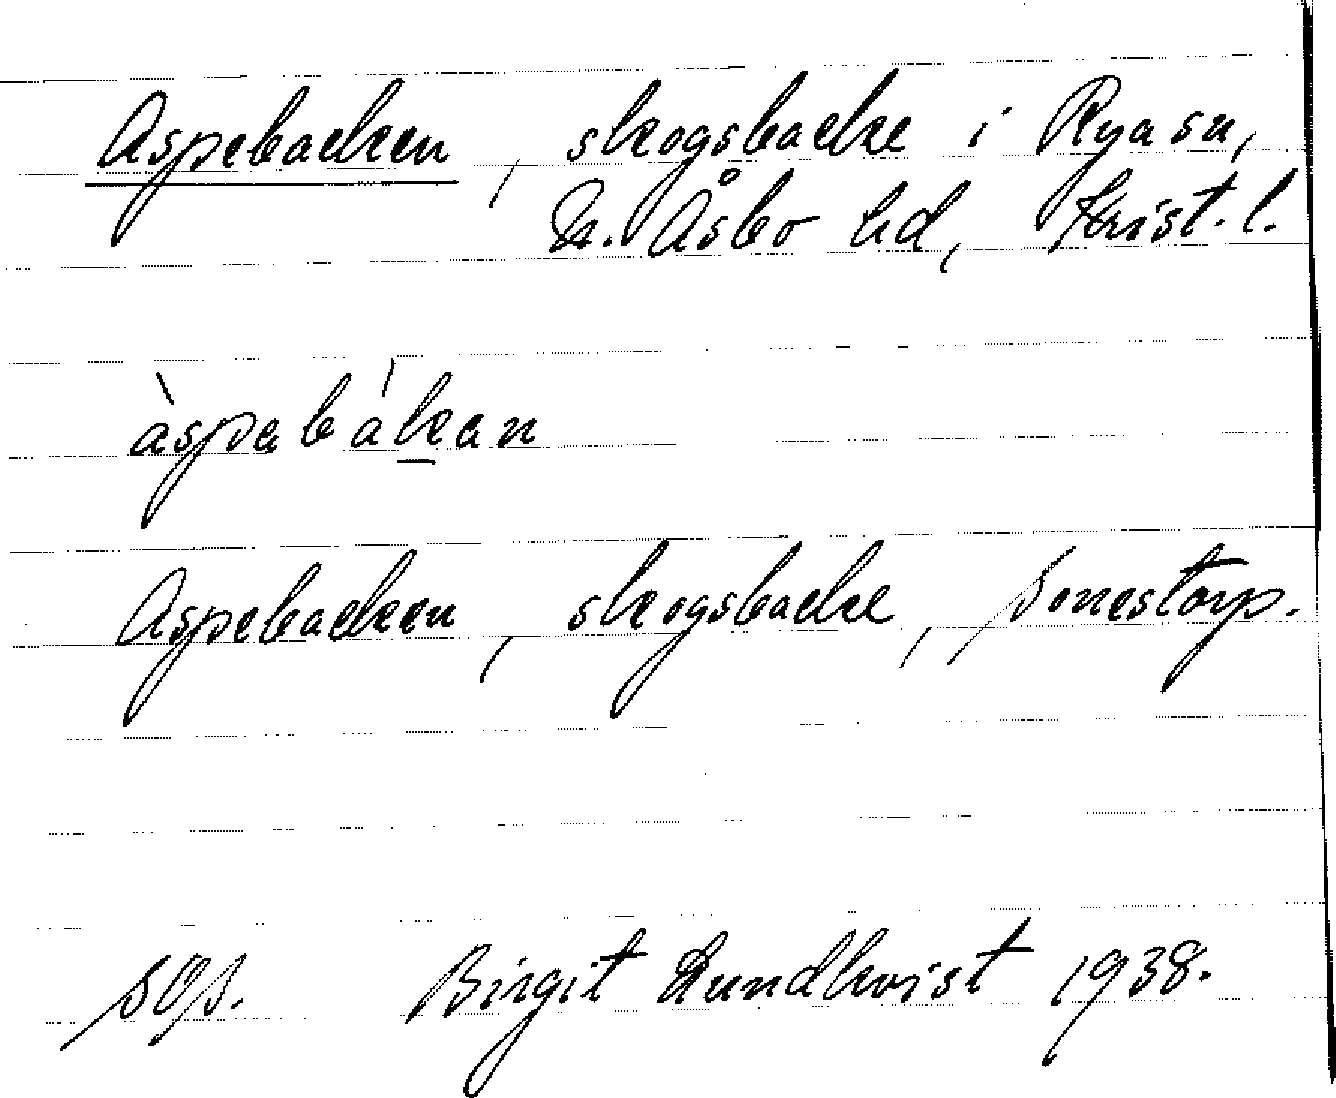 Aspebacken, skogsbacke i Rya sn,
N. Åsbo hd, Krist. l.
àspabákan
Aspebacken, skogsbacke, Sonestorp.
Birgit Lundkvist 1938.